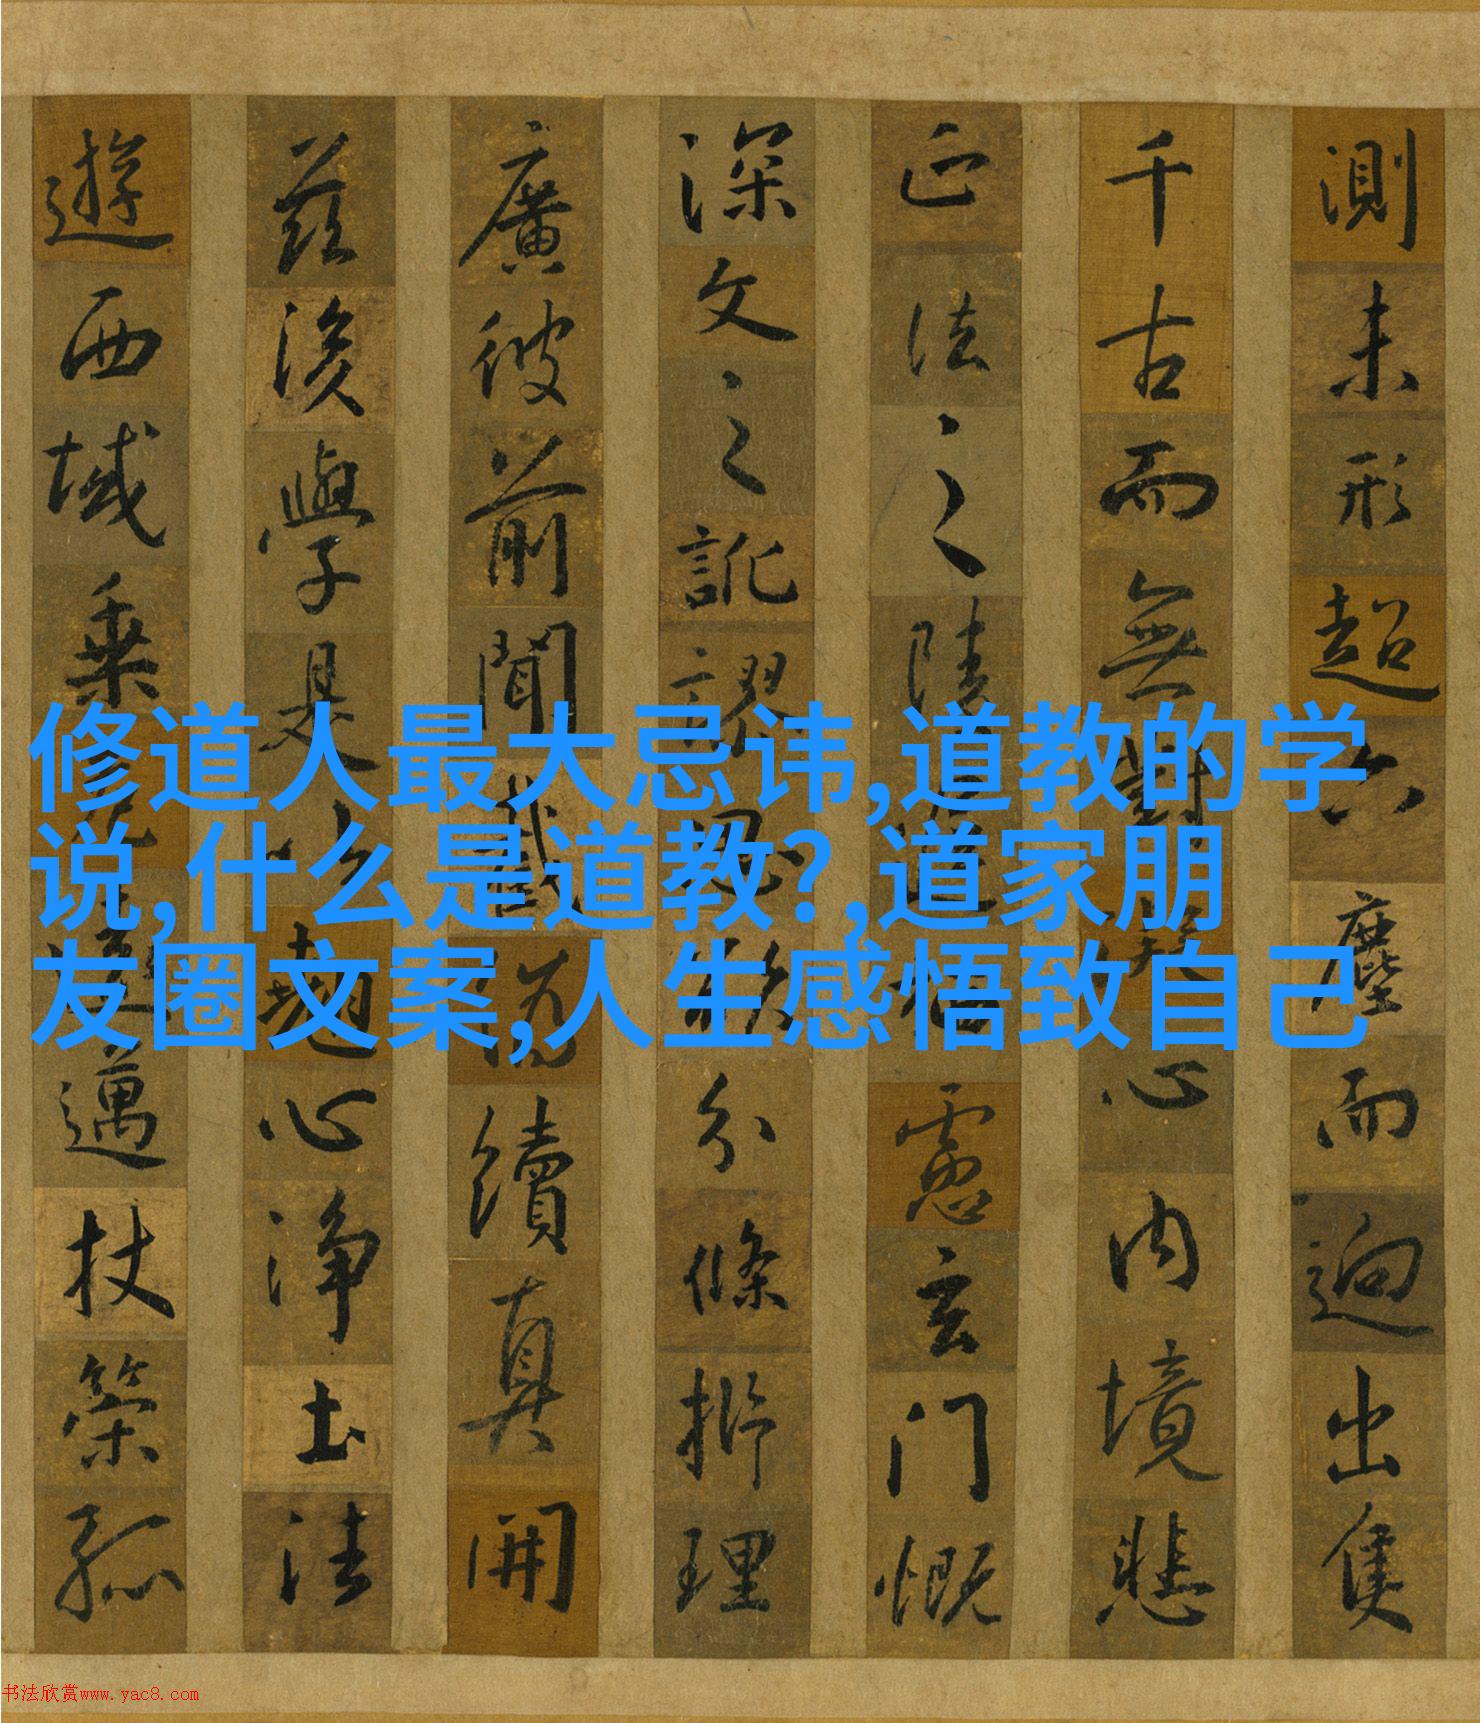 測未形超六塵而迥出隻
千古而無對凝心內境悲
正法之陵遲栖慮玄門慨
深文之訛謬思欲分條析理
廣彼前聞截偽續真開
茲後學是以翹心淨土法
遊西域乘危遠邁杖策孤
修道人最大忌讳,道教的学
说,什么是道教?,道家朋
友圈文案,人生感悟致自己
书法欣赏www.yac8.com